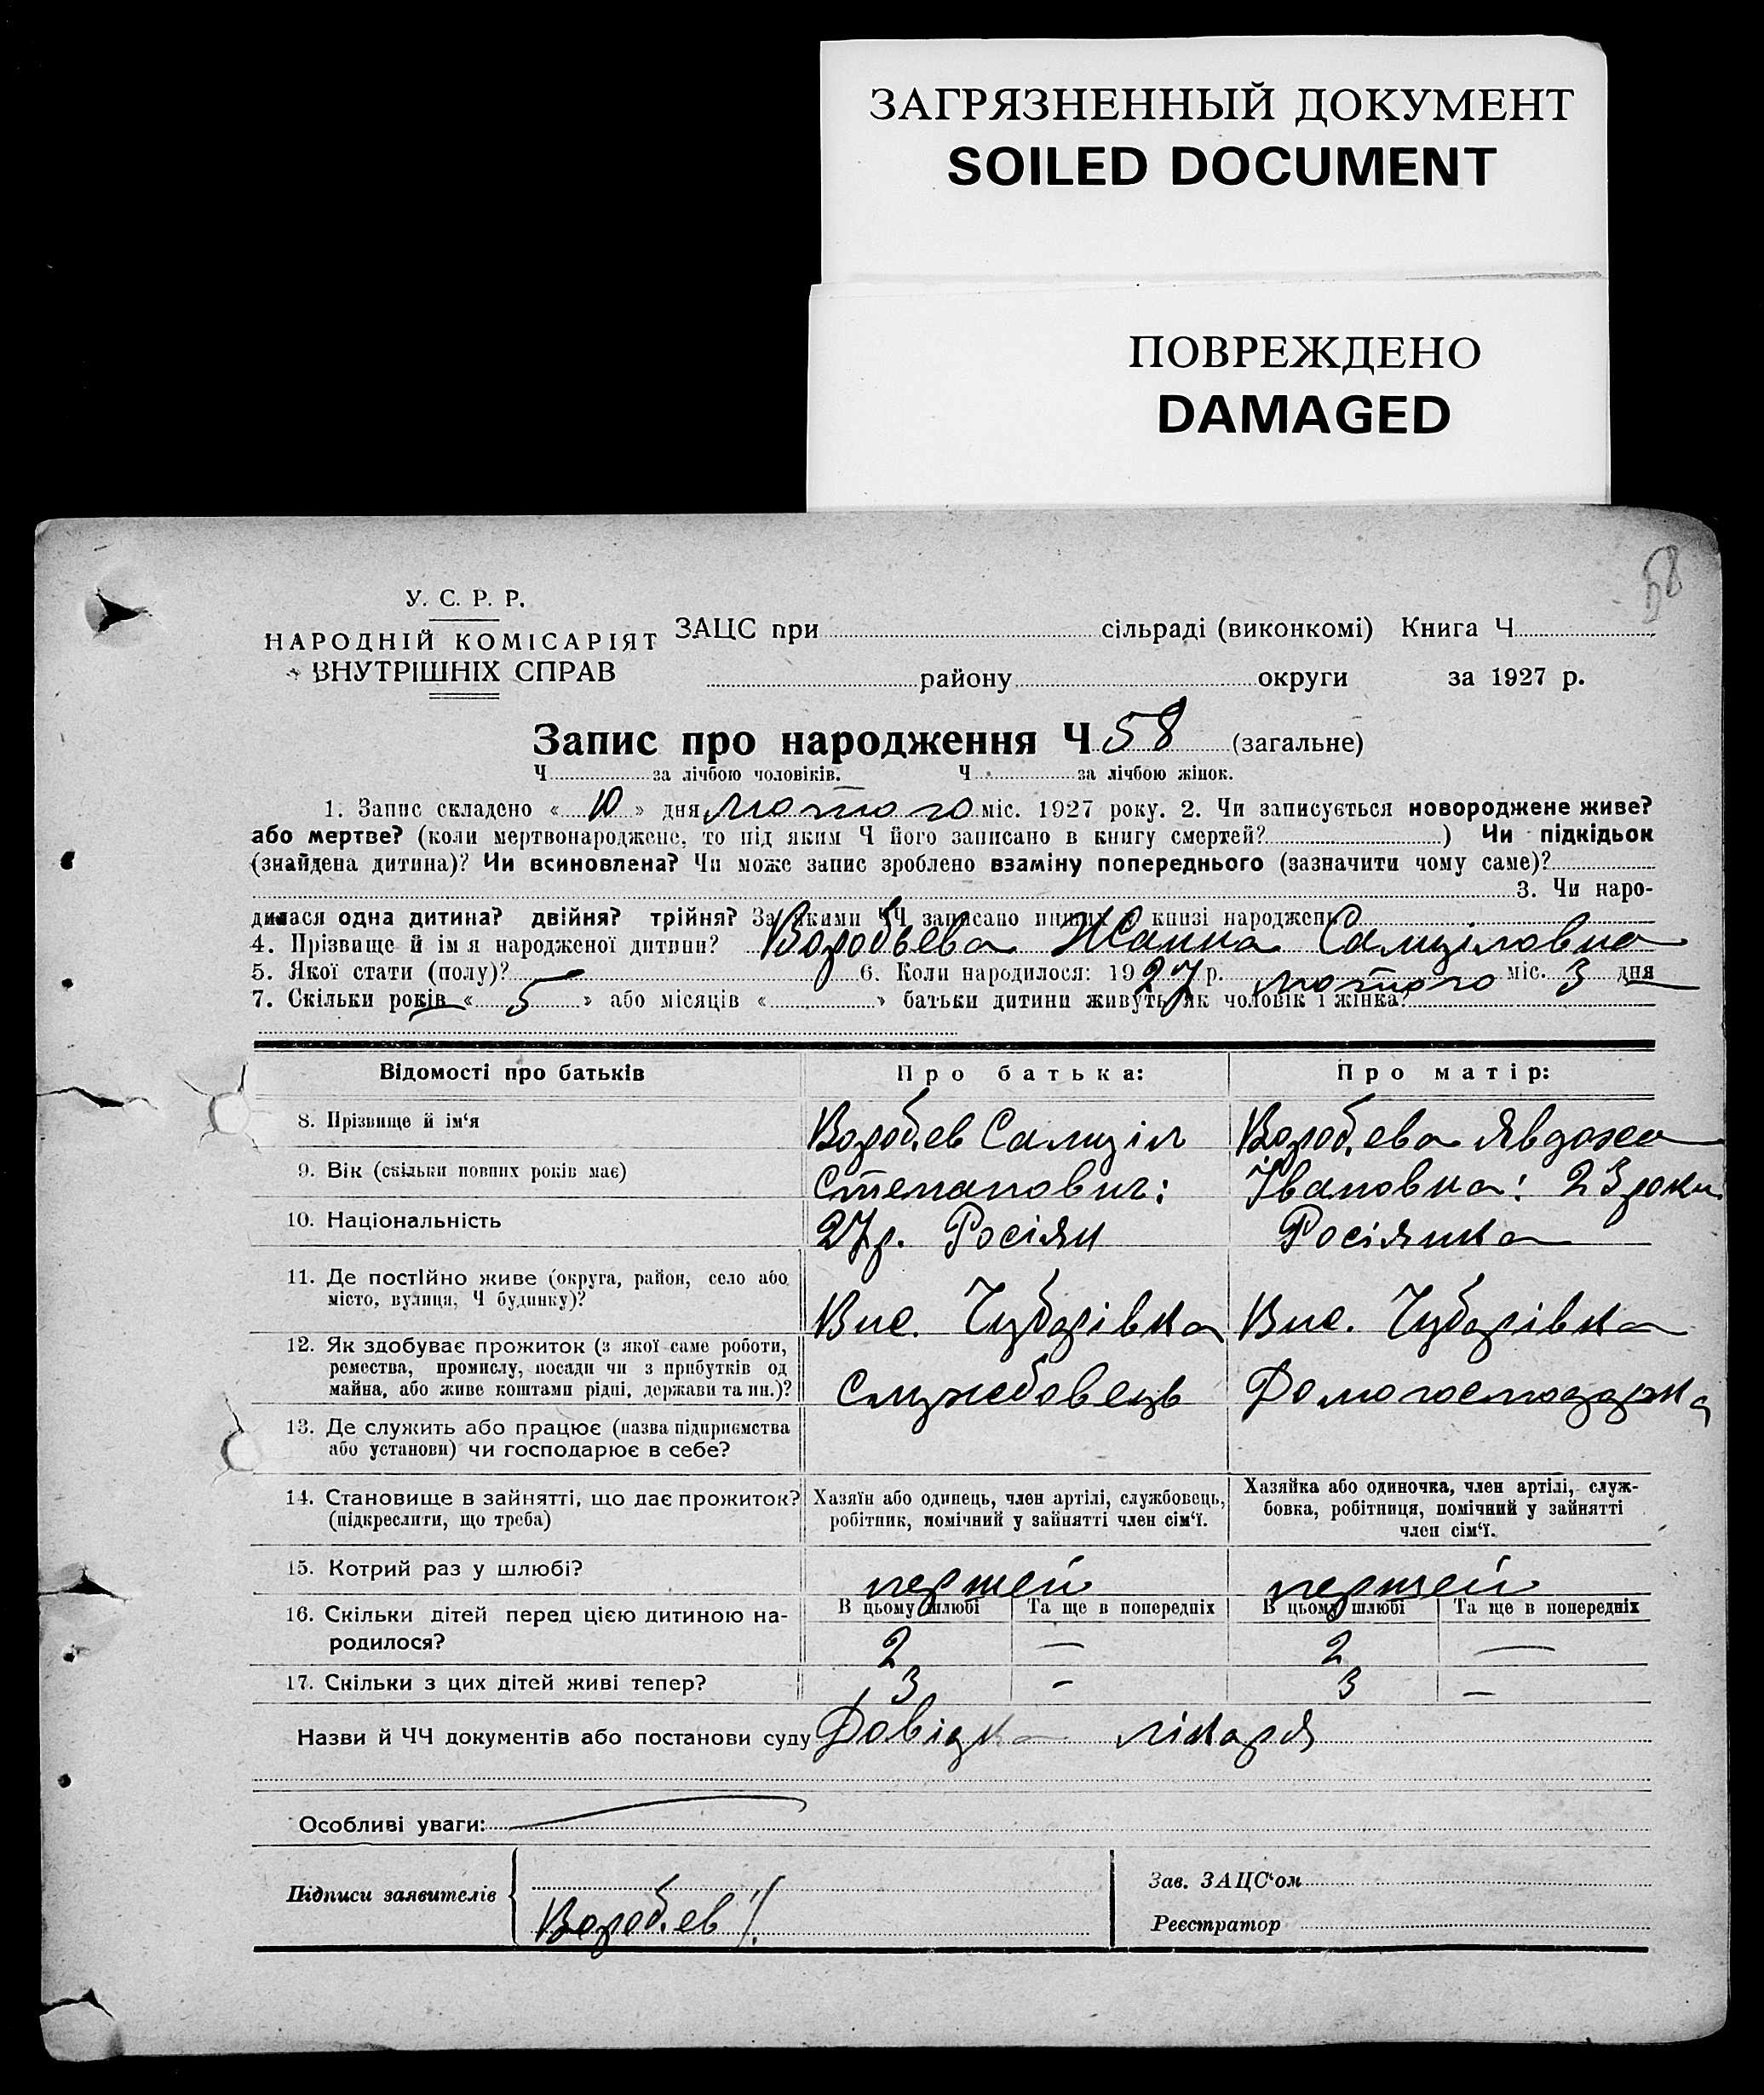 ЗАГРЯЗНЕННЫЙ ДОКУМЕНТ
SOILED DOCUMENT
ПОВРЕЖДЕНО
DAMAGED
58
У. С. Р. Р.
НАРОДНІЙ КОМІСАРІЯТ
ВНУТРІШНІХ СПРАВ
ЗАЦС при сільраді (виконкомі) Книга Ч
району округи за 1927 р.
Запис про народження Ч 58 (загальне)
Ч за лічбою чоловіків. Ч за лічбою жінок.
1. Запис складено « 10 » дня лютого міс. 1927 року. 2. Чи записується новороджене живе?
або мертве? (коли мертвонароджене, то під яким Ч його записано в книгу смертей? ) Чи підкідьок
(знайдена дитина)? Чи всиновлена? Чи може запис зроблено взаміну попереднього (зазначити чому саме)?
3. Чи наро-
дилася одна дитина? двійня? трійня? За якими ЧЧ записано инших в книзі народжень
4. Прізвище й ім я народженої дитини? Воробьева Жанна Самуіловна
5. Якої стати (полу)? 6. Коли народилося: 1927 р. лютого міс. 3 дня
7. Скільки років « 5 » або місяців « » батьки дитини живуть як чоловік і жінка?
Відомості про батьків Про батька: Про матір:
8. Прізвище й ім‘я Вороб.ев Самуіл Вороб.ева Явдоха
9. Вік (скільки повних років має) Степанович: Івановна: 23 роки
10. Національність 27 р. Росіян Росіянка
11. Де постійно живе (округа, район, село або
місто, вулиця, Ч будинку)? Вис. Чубарівка Вис. Чубарівка
12. Як здобуває прожиток (з якої саме роботи,
ремества, промислу, посади чи з прибутків од
майна, або живе коштами рідні, держави та ин.)? Службовець Домогосподарка
13. Де служить або працює (назва підприємства
або установи) чи господарює в себе?
14. Становище в зайнятті, що дає прожиток? Хазяїн або одинець, член артілі, службовець, Хазяйка або одиночка, член артілі, служ-
(підкреслити, що треба) робітник, помічний у зайнятті член сім‘ї. бовка, робітниця, помічний у зайнятті
член сім‘ї.
15. Котрий раз у шлюбі? первей первей
16. Скільки дітей перед цією дитиною на- В цьому шлюбі Та ще в попередніх В цьому шлюбі Та ще в попередніх
родилося? 2 — 2 —
17. Скільки з цих дітей живі тепер? 3 - 3 —
Назви й ЧЧ документів або постанови суду Довідка лікаря
Особливі уваги:
Підписи заявителів Вороб.ев
Зав. ЗАЦС‘ом
Реєстратор